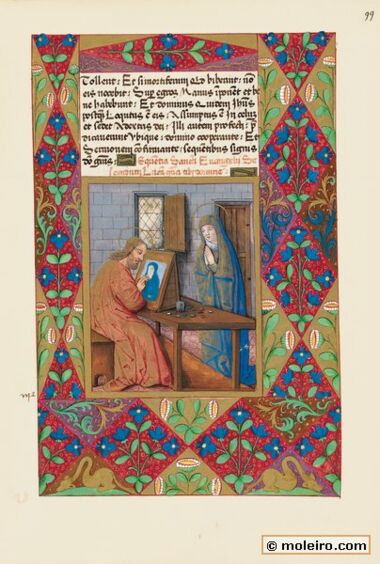 99
Tollent: Et si mortiferum quid biberint: non
eis nocebit: Super egros manus iponēt et be
ne habebunt: Et dominus quidem Ihūs
postq̄ Loqutus ē eis: Assumptus ē In celum
et sedet A dextris dei: Illi autem profecti: p̄
dicauerunt Ubique: domino cooperante: Et
Sermonem cōfirmante: sequentibus signis
Sequentia Sancti Euangelii Se
cundum
© moleiro.com